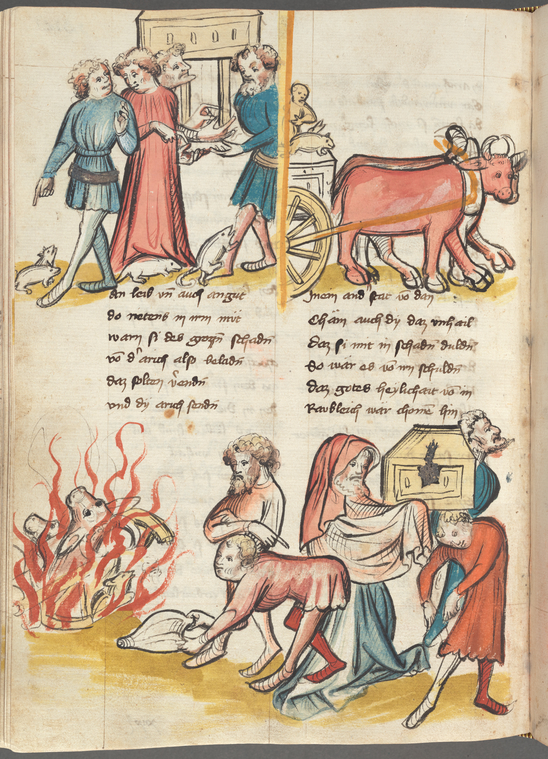 an leib vn̄ auch an gut
do rietens in irn mūt
warn si des grozn̄ schadn̄
vō d'arch also beladn̄
daz solten v'endn̄
vnd dy arch sendn̄
Inein and' stat vō dan
Chäm auch dy daz vnhail
daz si mit in schadn̄ duldn̄
So wär es vō irn schuldn̄
Daz gotes heylichait vō in
Raubleich war chome hin